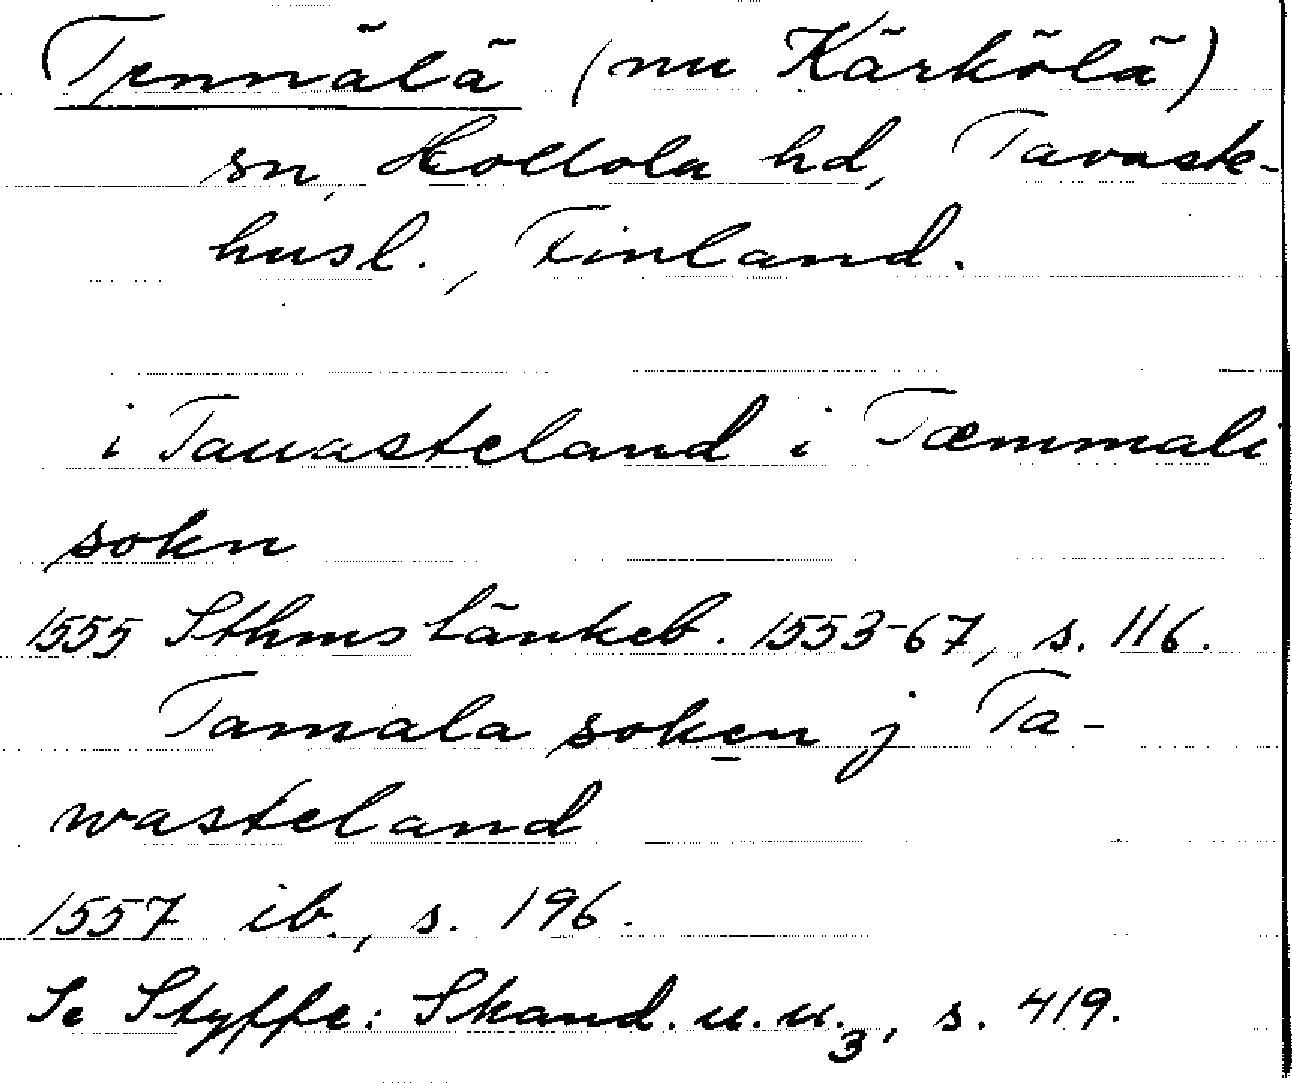 Tennälä (nu Kärkölä)
sn, Hollola hd, Tavaste-
husl., Finland.
i Tauasteland i Tæmmali
sokn
1555 Sthms tänkeb. 1553-67, s. 116.
Tamala soken j Ta-
wasteland
1557 ib., s. 196.
Se Styffe: Skand. u. u. 3, s. 419.